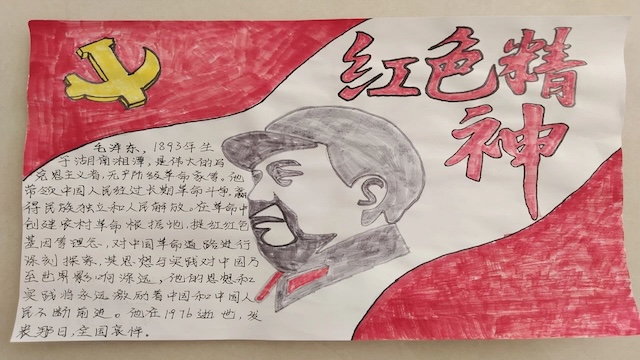 红色精
神
毛泽东,1893年生
于湖南湘潭,是伟大的马
克思主义者,无产阶级革命家等。他
带领中国人民经过长期革命斗争,赢
得民族独立和人民解放。在革命中
创建农村革命根据地,提红红色
基因等理念,对中国革命道路进行
深刻探索,其思想与实践对中国乃
至世界影响深远,他的思想和
实践将永远激励着中国和中国人
民不断前进。他在1976逝世,发
丧那日,全国哀悼。